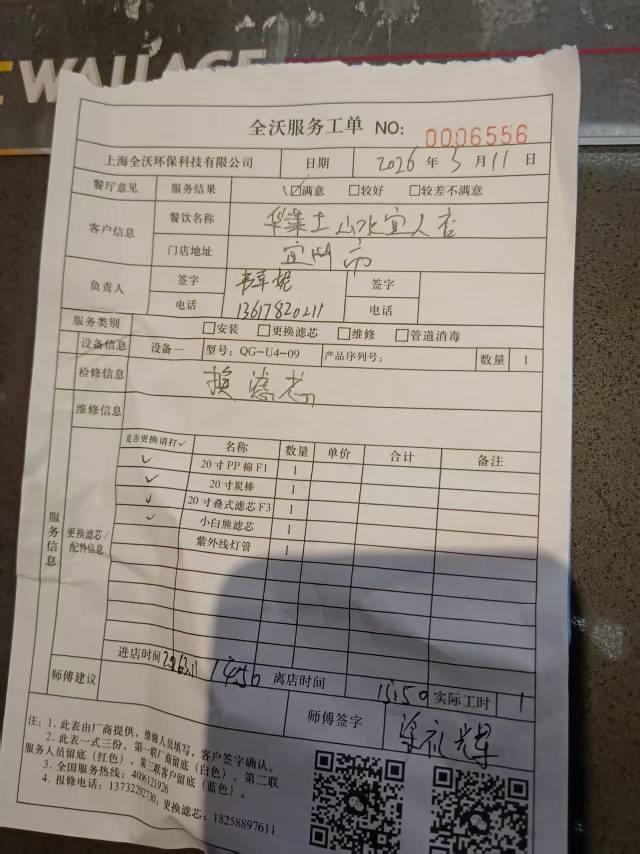 WALLACE
全沃服务工单 NO: 0006556
上海全沃环保科技有限公司 日期 2026 年 3 月 11 日
餐厅意见 服务结果 ☑满意 □较好 □较差不满意
客户信息 餐饮名称 华莱士山水宜人店
门店地址 宜州市
负责人 签字 签字
电话 13617820211 电话
服务类别 □安装 □更换滤芯 □维修 □管道消毒
设备信息 设备一 型号: QG-U4-09 产品序列号: 数量 1
检修信息 换滤芯
维修信息
服务信息
更换滤芯/配件信息
是否更换请打✓ 名称 数量 单价 合计 备注
✓ 20寸PP棉F1 1
✓ 20寸炭棒 1
✓ 20寸叠式滤芯F3 1
✓ 小白熊滤芯 1
紫外线灯管 1
进店时间 2026.3.11 14:50 离店时间 15:50 实际工时 1
师傅建议 师傅签字
注: 1. 此表由厂商提供, 维修人员填写, 客户签字确认。
2. 此表一式三份, 第一联厂商留底(白色), 第二联
服务人员留底(红色), 第三联客户留底(蓝色)。
3. 全国服务热线: 4006121926
4. 报修电话: 13732292730; 更换滤芯: 18258897611